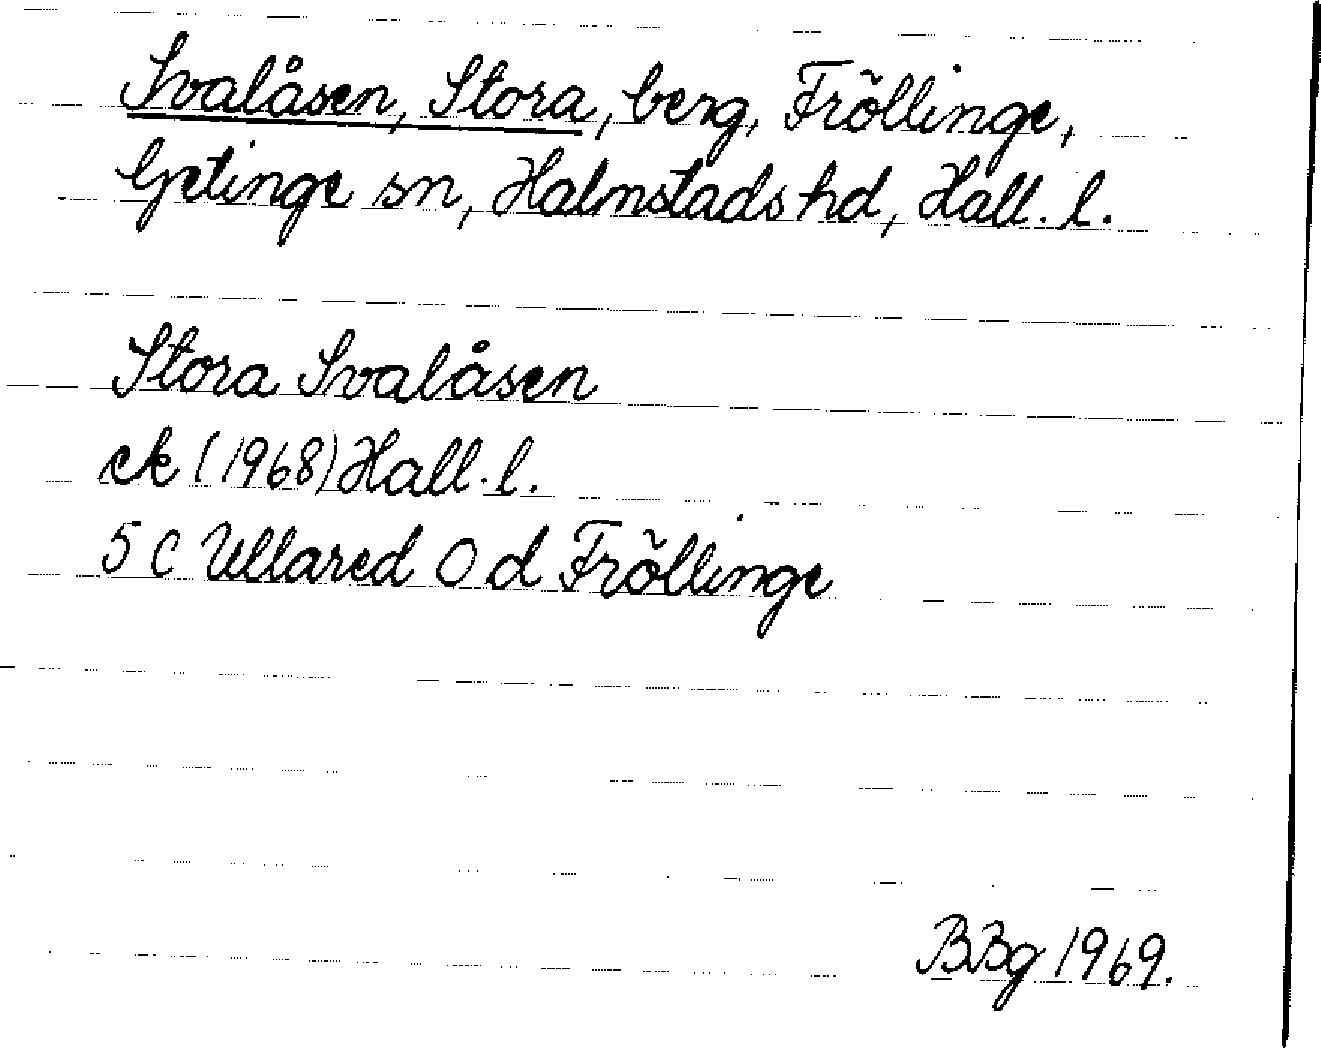 Svalåsen, Stora, berg, Fröllinge,
Getinge sn, Halmstads hd, Hall. l.
Stora Svalåsen
ek (1968) Hall. l.
5 C Ullared 0 d Fröllinge
BBg 1969.